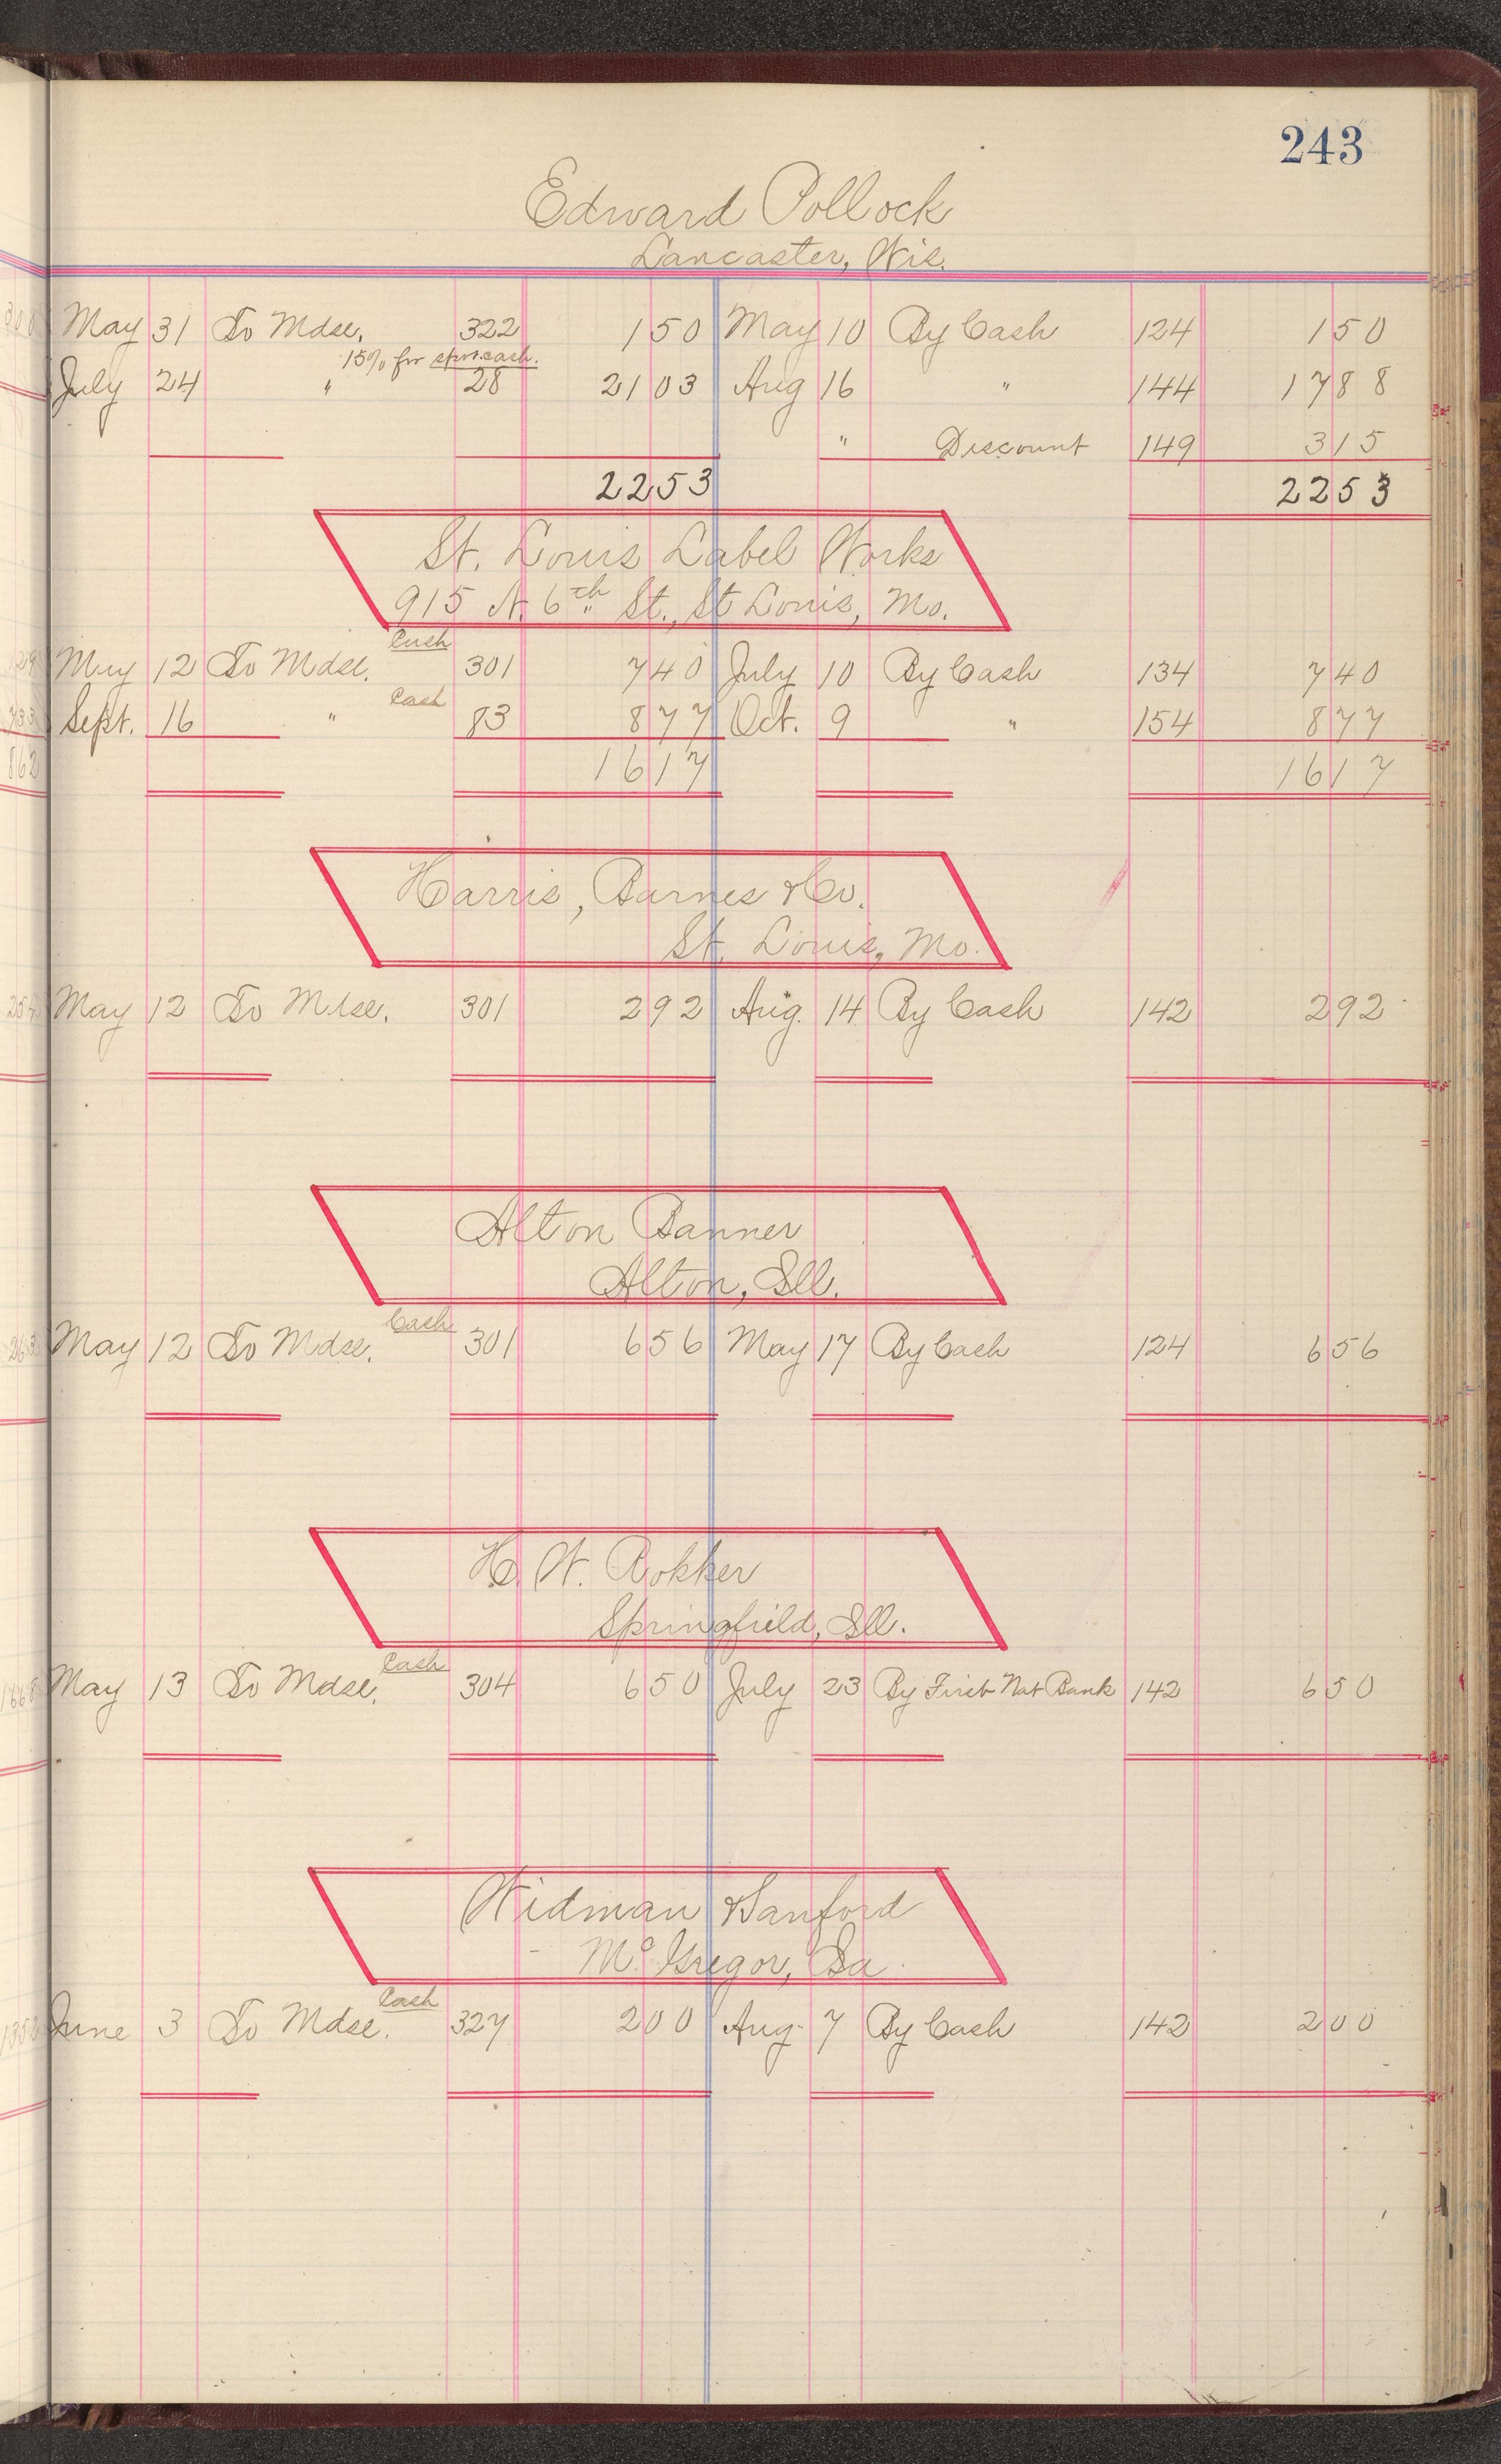 243
Edward Pollock
Lancaster, Wis.
May 31 To Mdse. 322 1 50 May 10 By Cash 124 1 50
15% for spot cash.
July 24 " 28 21 03 Aug 16 " 144 17 88
" Discount 149 3 15
22 53 22 53
St. Louis Label Works
915 N. 6th St., St Louis, Mo.
Cash
May 12 To Mdse. 301 7 40 July 10 By Cash 134 7 40
Cash
Sept. 16 " 83 8 77 Oct. 9 " 154 8 77
16 17 16 17
Harris, Barnes & Co.
St. Louis, Mo.
May 12 To Mdse. 301 2 92 Aug. 14 By Cash 142 2 92
Alton Banner
Alton, Ill.
Cash
May 12 To Mdse. 301 6 56 May 17 By Cash 124 6 56
H. W. Rokker
Springfield, Ill.
Cash
May 13 To Mdse. 304 6 50 July 23 By First Nat Bank 142 6 50
Widman & Sanford
McGregor, Ia.
Cash
June 3 To Mdse. 327 2 00 Aug. 7 By Cash 142 2 00